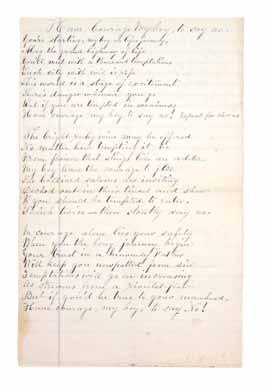 Have Courage My boy, to say no.
You're starting my boy on life's journey,
Along the grand highway of life
You'll meet with a thousand temptations
Each city with evil is rife
This world is a stage of excitement
There's danger wherever you go
But if you are tempted in weakness
Have courage my boy to say no! Repeat for chorus
The bright ruby wine may be offered
No matter how tempting it be
From poison that stings like an adder
My boy have the courage to flee
The billiard saloons are inviting
Decked out in their tinsel and show
If you should be tempted to enter
Think twice — then stoutly say no.
In courage alone lies your safety
When you the long journey begin
Your trust in a Heavenly Father
Will keep you unspotted from sin
Temptations will go on increasing
As streams from a rivulet flow
But if you'd be true to your manhood,
Have courage, my boy, to say No!